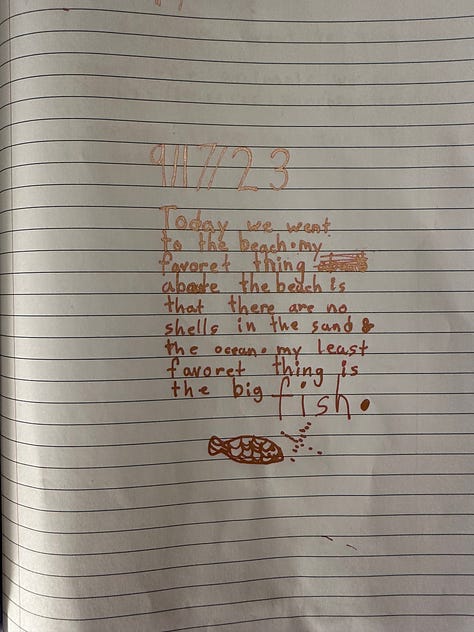 9/17/23
Today we went
to the beach. my
favoret thing
aboute the beach is
that there are no
shells in the sand &
the ocean. my least
favoret thing is
the big fish.